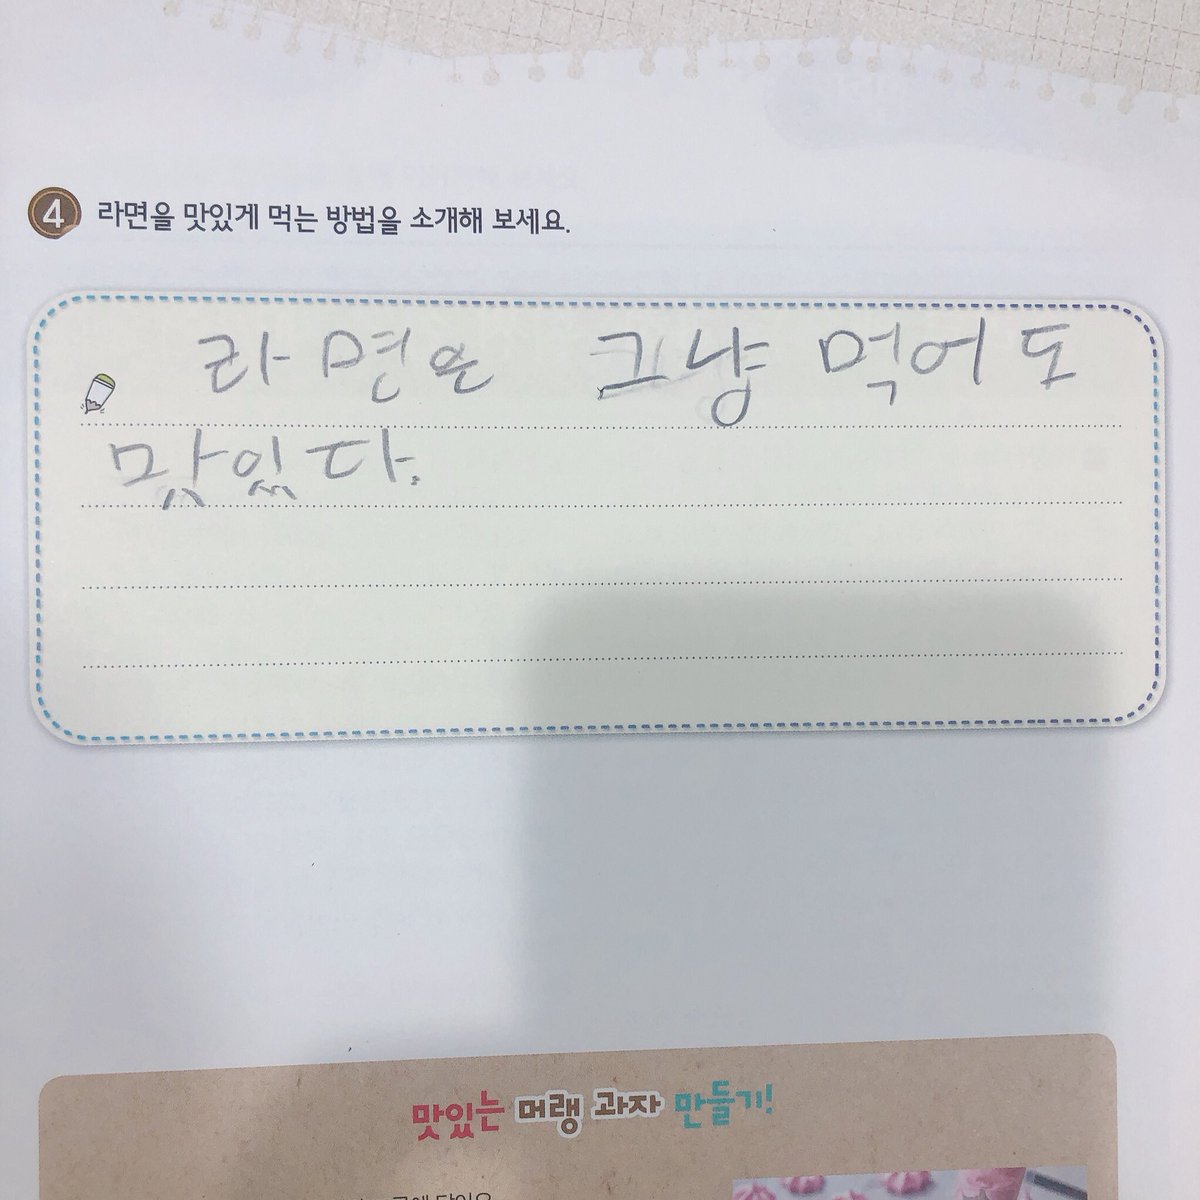 4 라면을 맛있게 먹는 방법을 소개해 보세요.
라면은 그냥 먹어도
맛있다.
맛있는 머랭 과자 만들기!